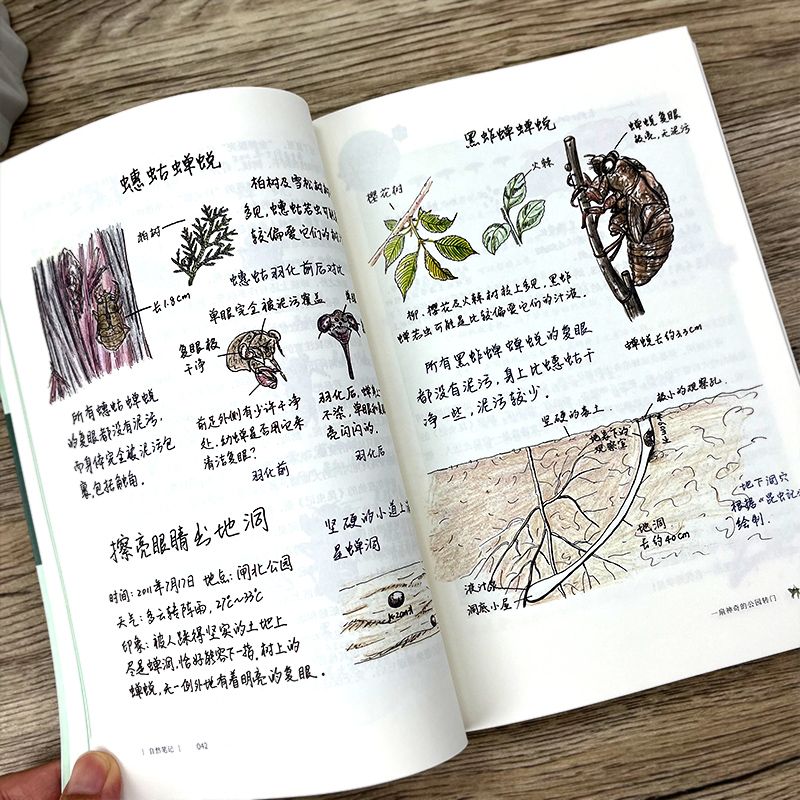 蟪蛄蝉蜕
柏树及雪松树
多见，蟪蛄若虫可能
较偏爱它们的
柏树
蟪蛄羽化前后对比
长1.8cm
单眼完全被泥污覆盖
复眼极
干净
所有蟪蛄蝉蜕
的复眼都没有泥污，
而身体完全被泥污包
裹，包括触角。
前足外侧有少许干净
处，幼蝉是否用它来
清洁复眼？
羽化前
羽化后，蝉
不染，单眼和
亮闪闪的。
羽化后
擦亮眼睛出地洞
时间：2011年7月17日 地点：闸北公园
天气：多云转阵雨，27℃~33℃
印象：被人踩得坚实的土地上
尽是蝉洞，恰好能容下一指。树上的
蝉蜕，无一例外地有着明亮的复眼。
坚硬的小道上
是蝉洞
自然笔记 042
黑蚱蝉蝉蜕
蝉蜕复眼
极亮，无泥污
樱花树
火棘
柳、樱花及火棘树枝上多见，黑蚱
蝉若虫可能是比较偏爱它们的汁液。
蝉蜕长约3.3cm
所有黑蚱蝉蝉蜕的复眼
都没有泥污，身上比蟪蛄干
净一些，泥污较少。
极小的观察孔
坚硬的表土
地表下的
观察室
地下洞穴
根据《昆虫记
绘制。
地洞
长约40cm
洞底小屋
一扇神奇的公园转门